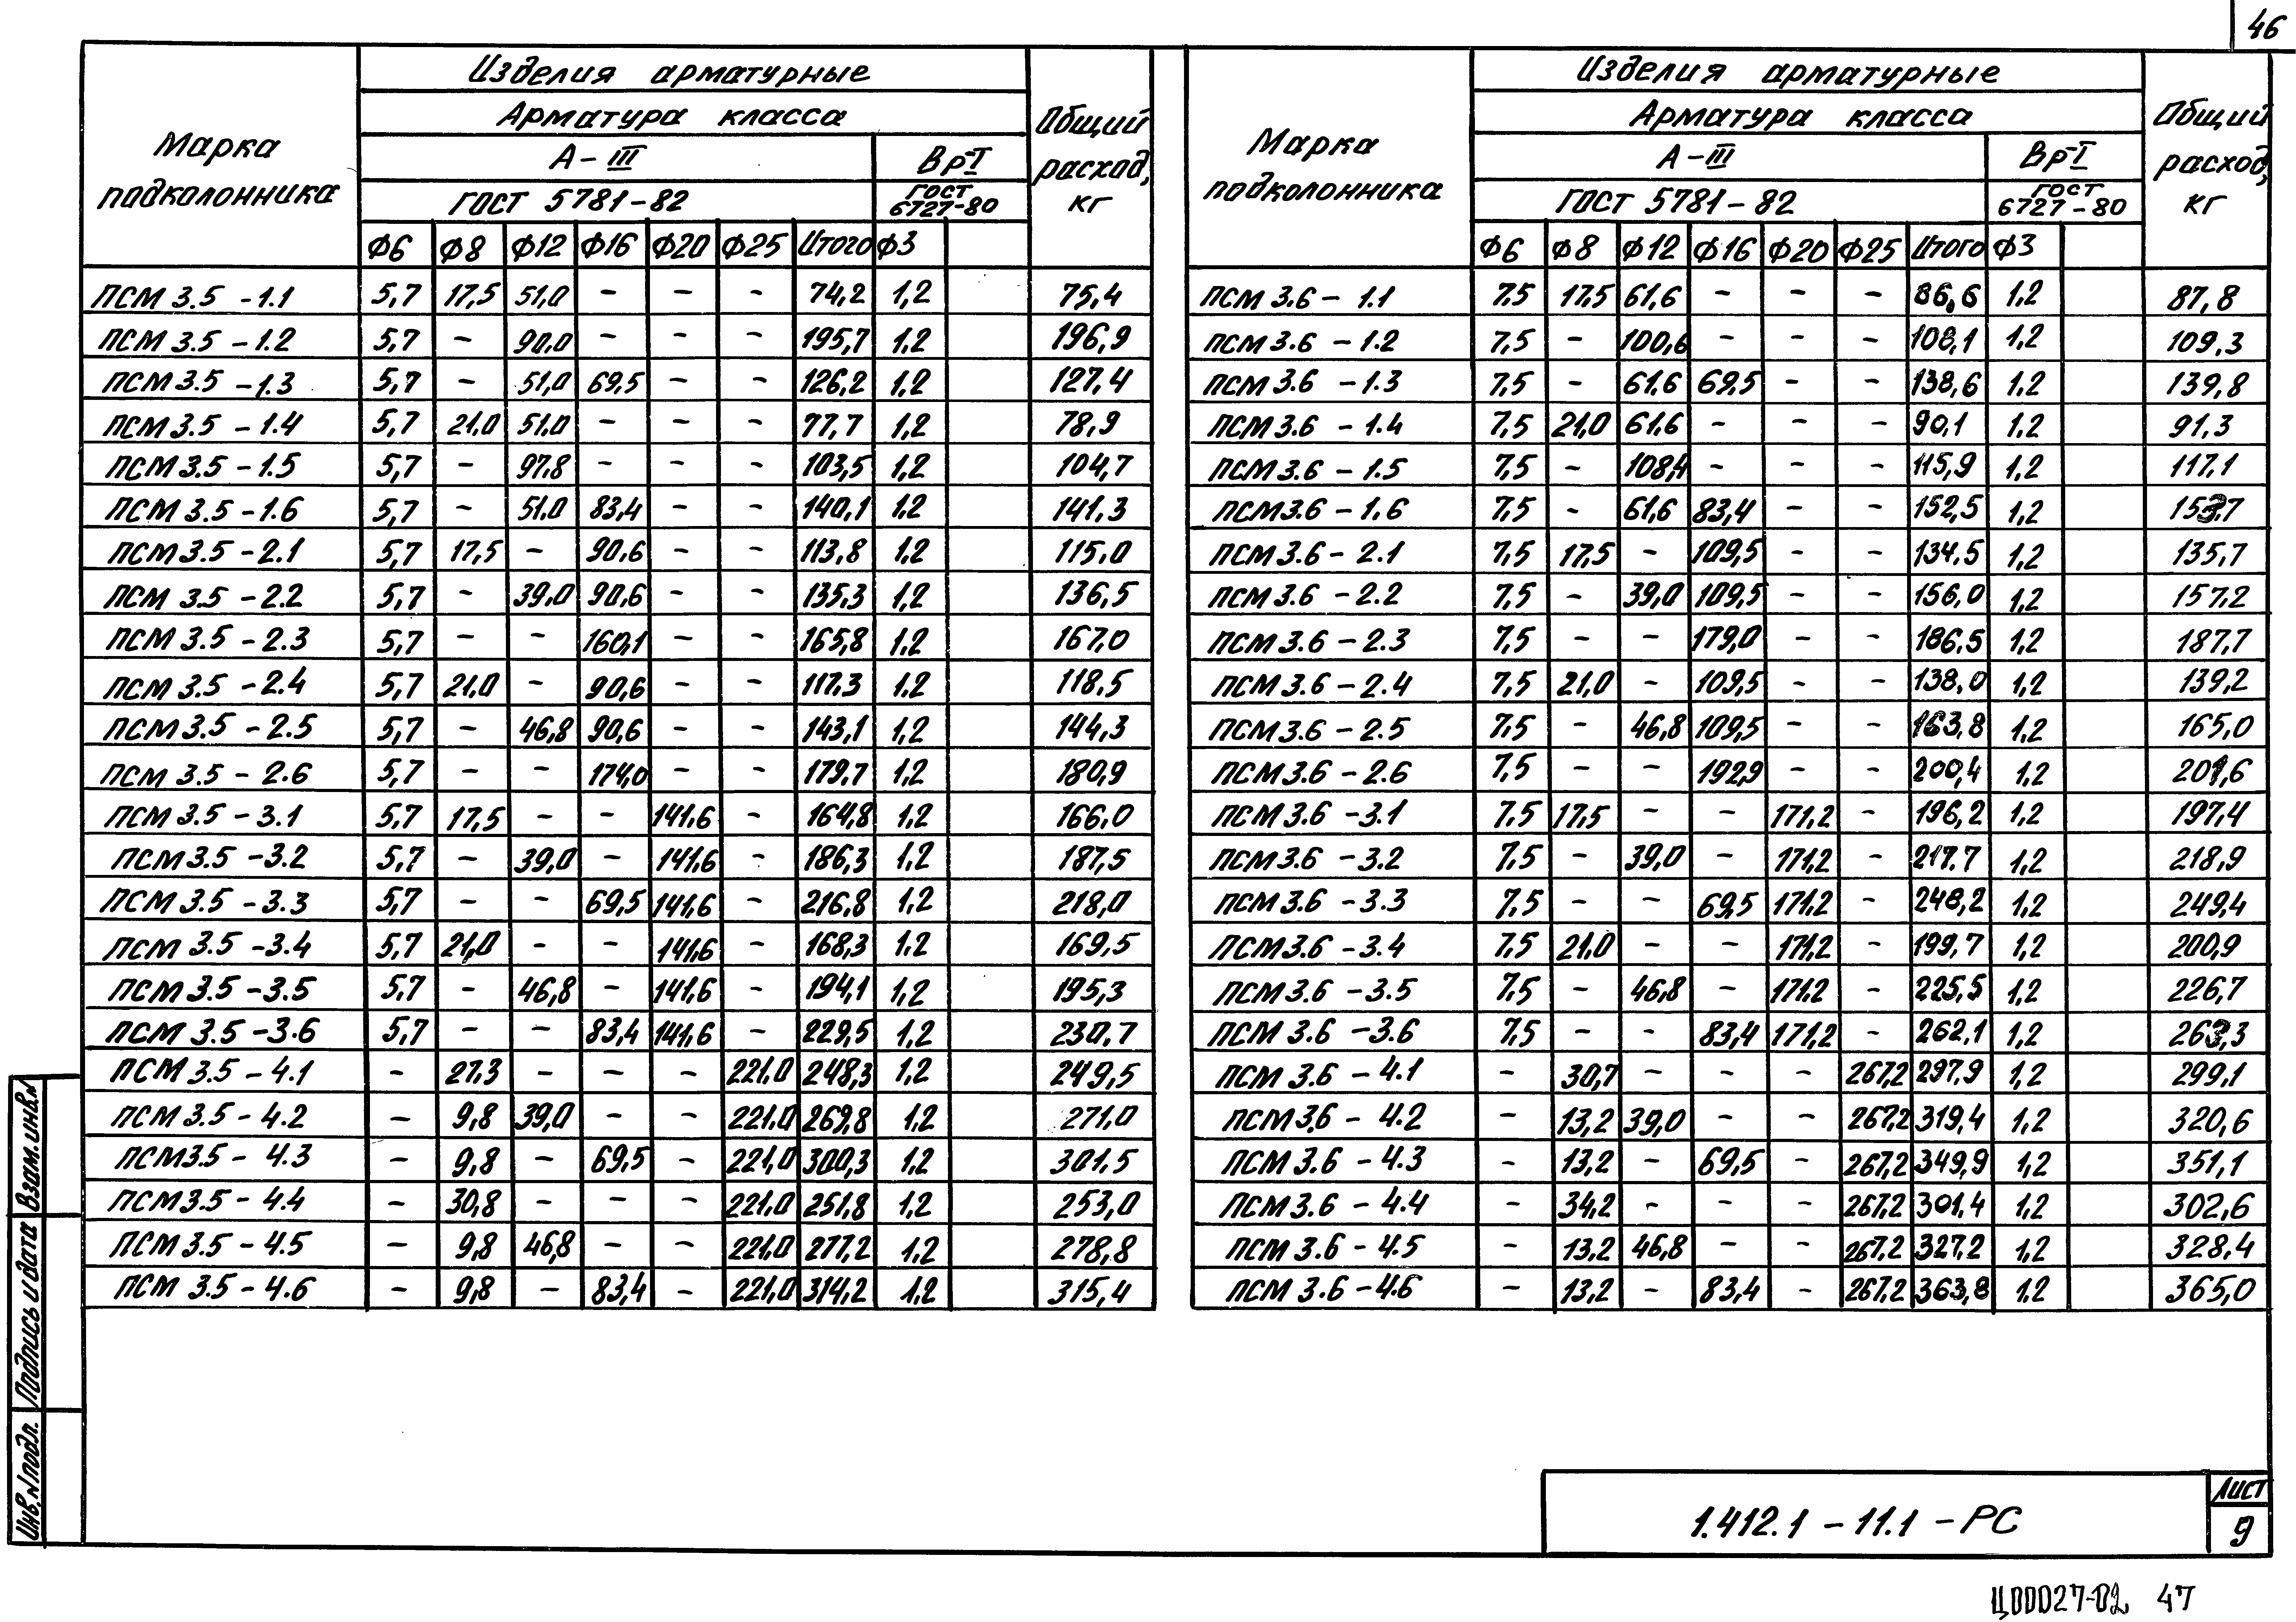 46
Марка подколонника | Изделия арматурные | Общий расход, кг
Арматура класса
А-III | Вр-I
ГОСТ 5781-82 | ГОСТ 6727-80
Ф6 | Ф8 | Ф12 | Ф16 | Ф20 | Ф25 | Итого | Ф3
ПСМ 3.5 - 1.1 | 5,7 | 17,5 | 51,0 | - | - | - | 74,2 | 1,2 | 75,4
ПСМ 3.5 - 1.2 | 5,7 | - | 90,0 | - | - | - | 195,7 | 1,2 | 196,9
ПСМ 3.5 - 1.3 | 5,7 | - | 51,0 | 69,5 | - | - | 126,2 | 1,2 | 127,4
ПСМ 3.5 - 1.4 | 5,7 | 21,0 | 51,0 | - | - | - | 77,7 | 1,2 | 78,9
ПСМ 3.5 - 1.5 | 5,7 | - | 97,8 | - | - | - | 103,5 | 1,2 | 104,7
ПСМ 3.5 - 1.6 | 5,7 | - | 51,0 | 83,4 | - | - | 140,1 | 1,2 | 141,3
ПСМ 3.5 - 2.1 | 5,7 | 17,5 | - | 90,6 | - | - | 113,8 | 1,2 | 115,0
ПСМ 3.5 - 2.2 | 5,7 | - | 39,0 | 90,6 | - | - | 135,3 | 1,2 | 136,5
ПСМ 3.5 - 2.3 | 5,7 | - | - | 160,1 | - | - | 165,8 | 1,2 | 167,0
ПСМ 3.5 - 2.4 | 5,7 | 21,0 | - | 90,6 | - | - | 117,3 | 1,2 | 118,5
ПСМ 3.5 - 2.5 | 5,7 | - | 46,8 | 90,6 | - | - | 143,1 | 1,2 | 144,3
ПСМ 3.5 - 2.6 | 5,7 | - | - | 174,0 | - | - | 179,7 | 1,2 | 180,9
ПСМ 3.5 - 3.1 | 5,7 | 17,5 | - | - | 141,6 | - | 164,8 | 1,2 | 166,0
ПСМ 3.5 - 3.2 | 5,7 | - | 39,0 | - | 141,6 | - | 186,3 | 1,2 | 187,5
ПСМ 3.5 - 3.3 | 5,7 | - | - | 69,5 | 141,6 | - | 216,8 | 1,2 | 218,0
ПСМ 3.5 - 3.4 | 5,7 | 21,0 | - | - | 141,6 | - | 168,3 | 1,2 | 169,5
ПСМ 3.5 - 3.5 | 5,7 | - | 46,8 | - | 141,6 | - | 194,1 | 1,2 | 195,3
ПСМ 3.5 - 3.6 | 5,7 | - | - | 83,4 | 141,6 | - | 229,5 | 1,2 | 230,7
ПСМ 3.5 - 4.1 | - | 27,3 | - | - | - | 221,0 | 248,3 | 1,2 | 249,5
ПСМ 3.5 - 4.2 | - | 9,8 | 39,0 | - | - | 221,0 | 269,8 | 1,2 | 271,0
ПСМ 3.5 - 4.3 | - | 9,8 | - | 69,5 | - | 221,0 | 300,3 | 1,2 | 301,5
ПСМ 3.5 - 4.4 | - | 30,8 | - | - | - | 221,0 | 251,8 | 1,2 | 253,0
ПСМ 3.5 - 4.5 | - | 9,8 | 46,8 | - | - | 221,0 | 277,2 | 1,2 | 278,8
ПСМ 3.5 - 4.6 | - | 9,8 | - | 83,4 | - | 221,0 | 314,2 | 1,2 | 315,4
Марка подколонника | Изделия арматурные | Общий расход, кг
Арматура класса
А-III | Вр-I
ГОСТ 5781-82 | ГОСТ 6727-80
Ф6 | Ф8 | Ф12 | Ф16 | Ф20 | Ф25 | Итого | Ф3
ПСМ 3.6 - 1.1 | 7,5 | 17,5 | 61,6 | - | - | - | 86,6 | 1,2 | 87,8
ПСМ 3.6 - 1.2 | 7,5 | - | 100,6 | - | - | - | 108,1 | 1,2 | 109,3
ПСМ 3.6 - 1.3 | 7,5 | - | 61,6 | 69,5 | - | - | 138,6 | 1,2 | 139,8
ПСМ 3.6 - 1.4 | 7,5 | 21,0 | 61,6 | - | - | - | 90,1 | 1,2 | 91,3
ПСМ 3.6 - 1.5 | 7,5 | - | 108,4 | - | - | - | 115,9 | 1,2 | 117,1
ПСМ 3.6 - 1.6 | 7,5 | - | 61,6 | 83,4 | - | - | 152,5 | 1,2 | 153,7
ПСМ 3.6 - 2.1 | 7,5 | 17,5 | - | 109,5 | - | - | 134,5 | 1,2 | 135,7
ПСМ 3.6 - 2.2 | 7,5 | - | 39,0 | 109,5 | - | - | 156,0 | 1,2 | 157,2
ПСМ 3.6 - 2.3 | 7,5 | - | - | 179,0 | - | - | 186,5 | 1,2 | 187,7
ПСМ 3.6 - 2.4 | 7,5 | 21,0 | - | 109,5 | - | - | 138,0 | 1,2 | 139,2
ПСМ 3.6 - 2.5 | 7,5 | - | 46,8 | 109,5 | - | - | 163,8 | 1,2 | 165,0
ПСМ 3.6 - 2.6 | 7,5 | - | - | 192,9 | - | - | 200,4 | 1,2 | 201,6
ПСМ 3.6 - 3.1 | 7,5 | 17,5 | - | - | 171,2 | - | 196,2 | 1,2 | 197,4
ПСМ 3.6 - 3.2 | 7,5 | - | 39,0 | - | 171,2 | - | 217,7 | 1,2 | 218,9
ПСМ 3.6 - 3.3 | 7,5 | - | - | 69,5 | 171,2 | - | 248,2 | 1,2 | 249,4
ПСМ 3.6 - 3.4 | 7,5 | 21,0 | - | - | 171,2 | - | 199,7 | 1,2 | 200,9
ПСМ 3.6 - 3.5 | 7,5 | - | 46,8 | - | 171,2 | - | 225,5 | 1,2 | 226,7
ПСМ 3.6 - 3.6 | 7,5 | - | - | 83,4 | 171,2 | - | 262,1 | 1,2 | 263,3
ПСМ 3.6 - 4.1 | - | 30,7 | - | - | - | 267,2 | 297,9 | 1,2 | 299,1
ПСМ 3.6 - 4.2 | - | 13,2 | 39,0 | - | - | 267,2 | 319,4 | 1,2 | 320,6
ПСМ 3.6 - 4.3 | - | 13,2 | - | 69,5 | - | 267,2 | 349,9 | 1,2 | 351,1
ПСМ 3.6 - 4.4 | - | 34,2 | - | - | - | 267,2 | 301,4 | 1,2 | 302,6
ПСМ 3.6 - 4.5 | - | 13,2 | 46,8 | - | - | 267,2 | 327,2 | 1,2 | 328,4
ПСМ 3.6 - 4.6 | - | 13,2 | - | 83,4 | - | 267,2 | 363,8 | 1,2 | 365,0
Взам. инв. №
Подпись и дата
Инв. № подл.
1.412.1 - 11.1 - РС
Лист
9
Ц00027-02 47